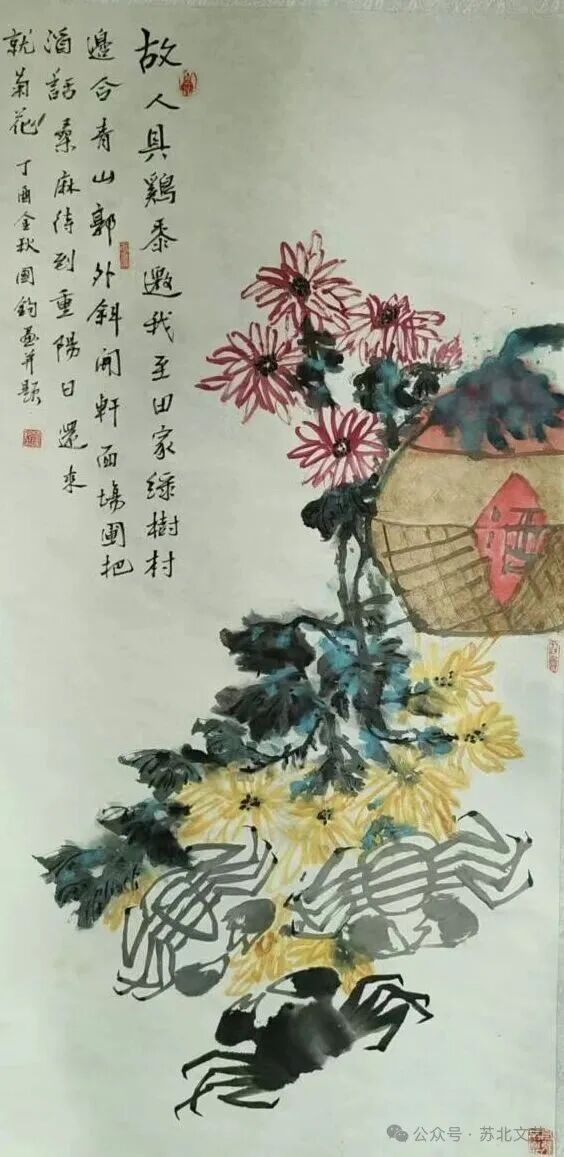 故人具鷄黍邀我至田家綠樹村
邊合青山郭外斜開軒面場圃把
酒話桑麻待到重陽日還來
就菊花 丁酉金秋國鈞畫并題
酒
公众号 · 苏北文艺